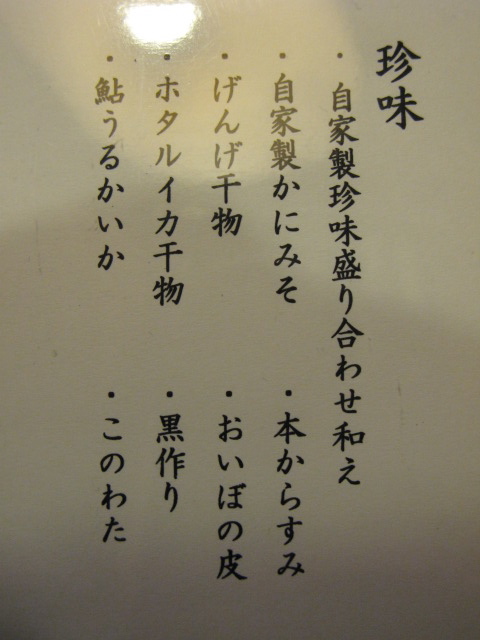 珍味
・自家製珍味盛り合わせ和え
・自家製かにみそ
・本からすみ
・げんげ干物
・おいぼの皮
・ホタルイカ干物
・黒作り
・鮎うるかいか
・このわた